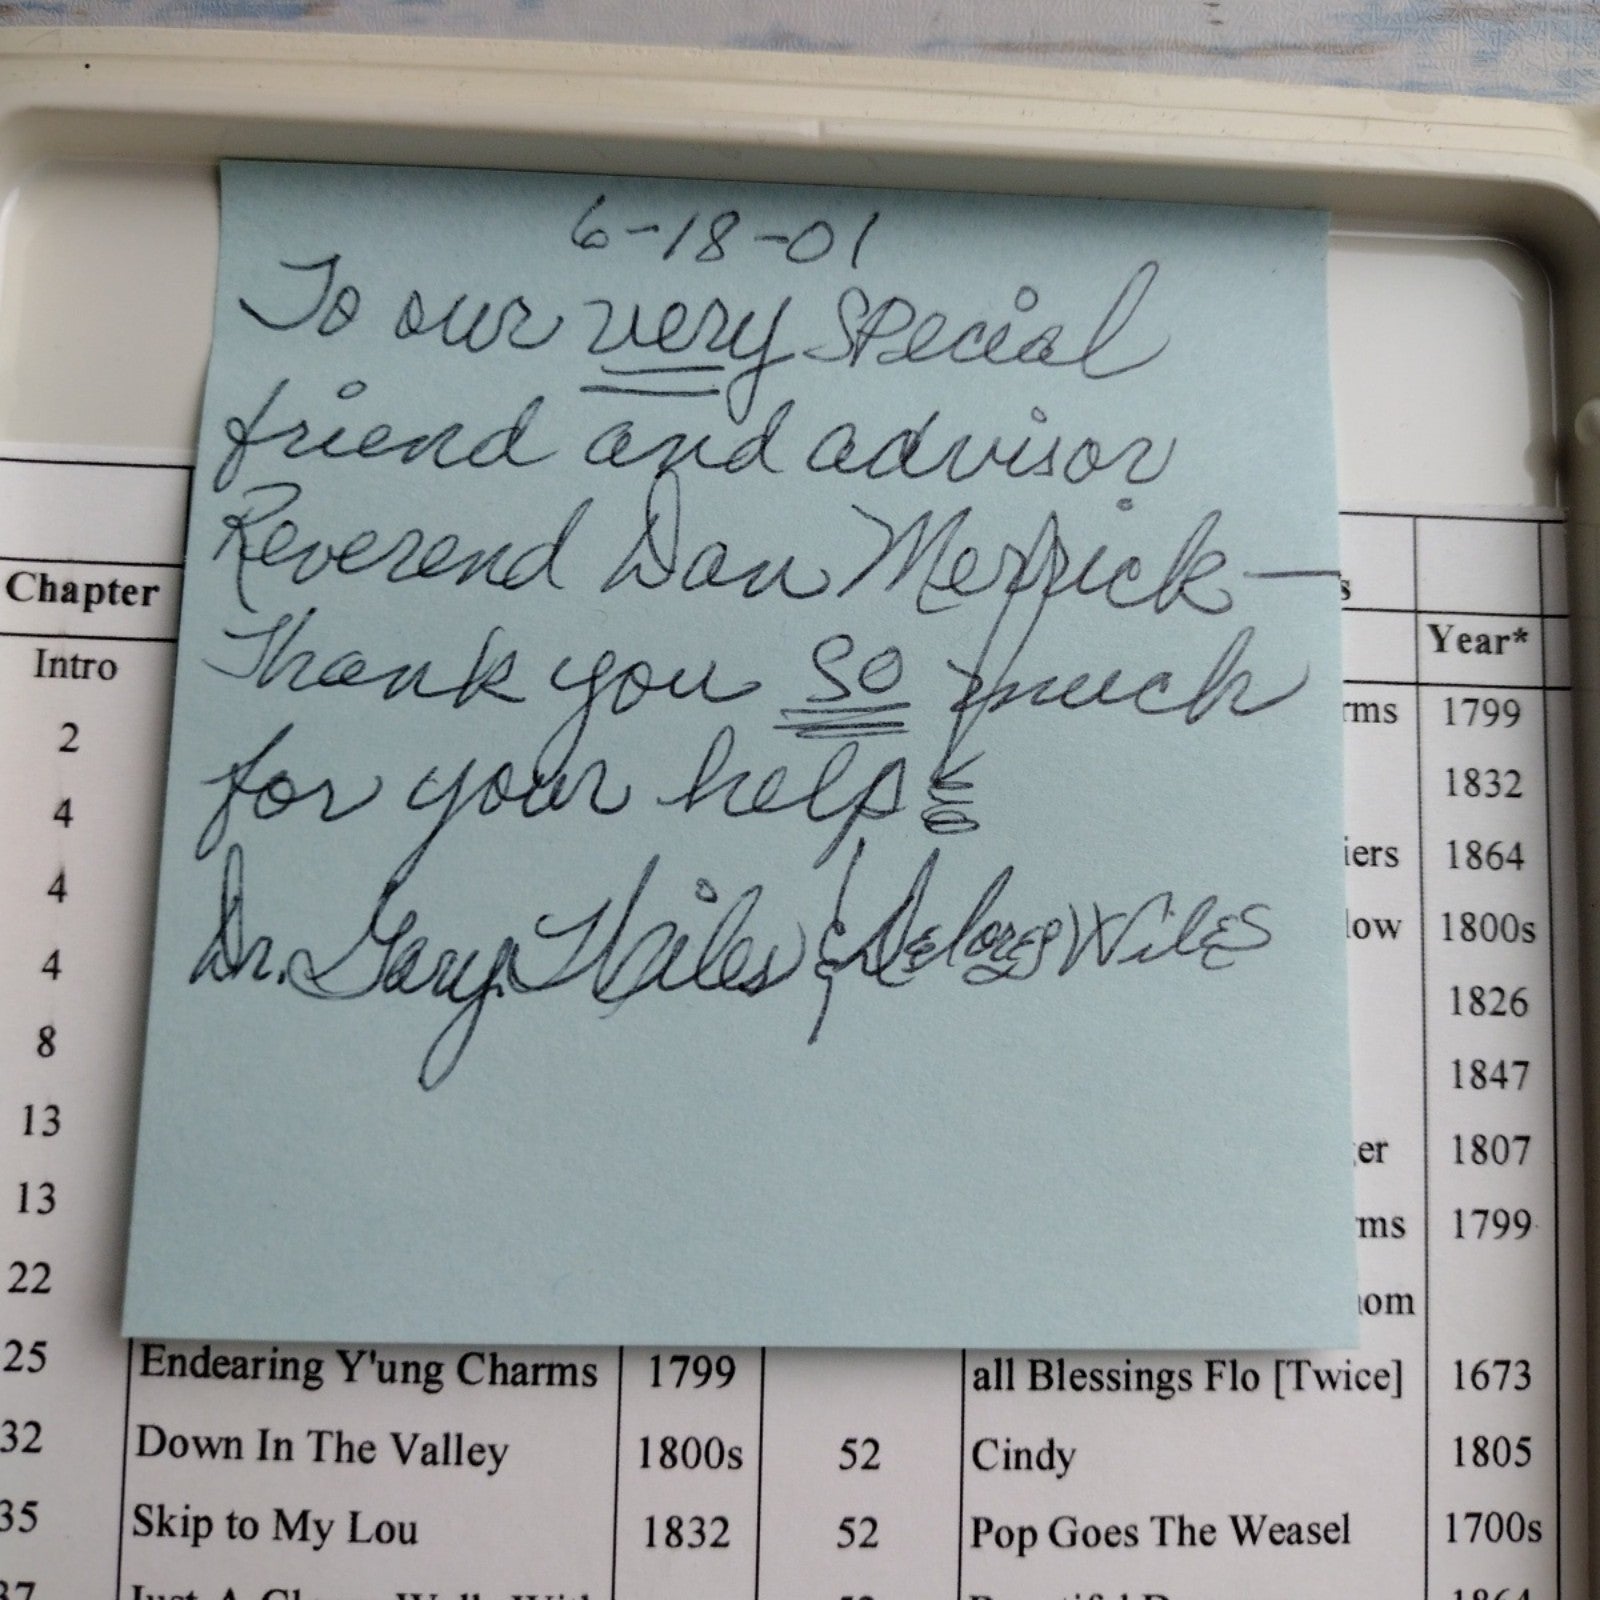 6-18-01
To our very special
friend and advisor
Reverend Dan Merrick —
Thank you so much
for your help
Dr. Gary Wiles & Delores Wiles
Chapter
Intro
2
4
4
4
8
13
13
22
25 Endearing Y'ung Charms 1799 all Blessings Flo [Twice] 1673
32 Down In The Valley 1800s 52 Cindy 1805
35 Skip to My Lou 1832 52 Pop Goes The Weasel 1700s
Year*
rms 1799
1832
iers 1864
low 1800s
1826
1847
er 1807
rms 1799
om